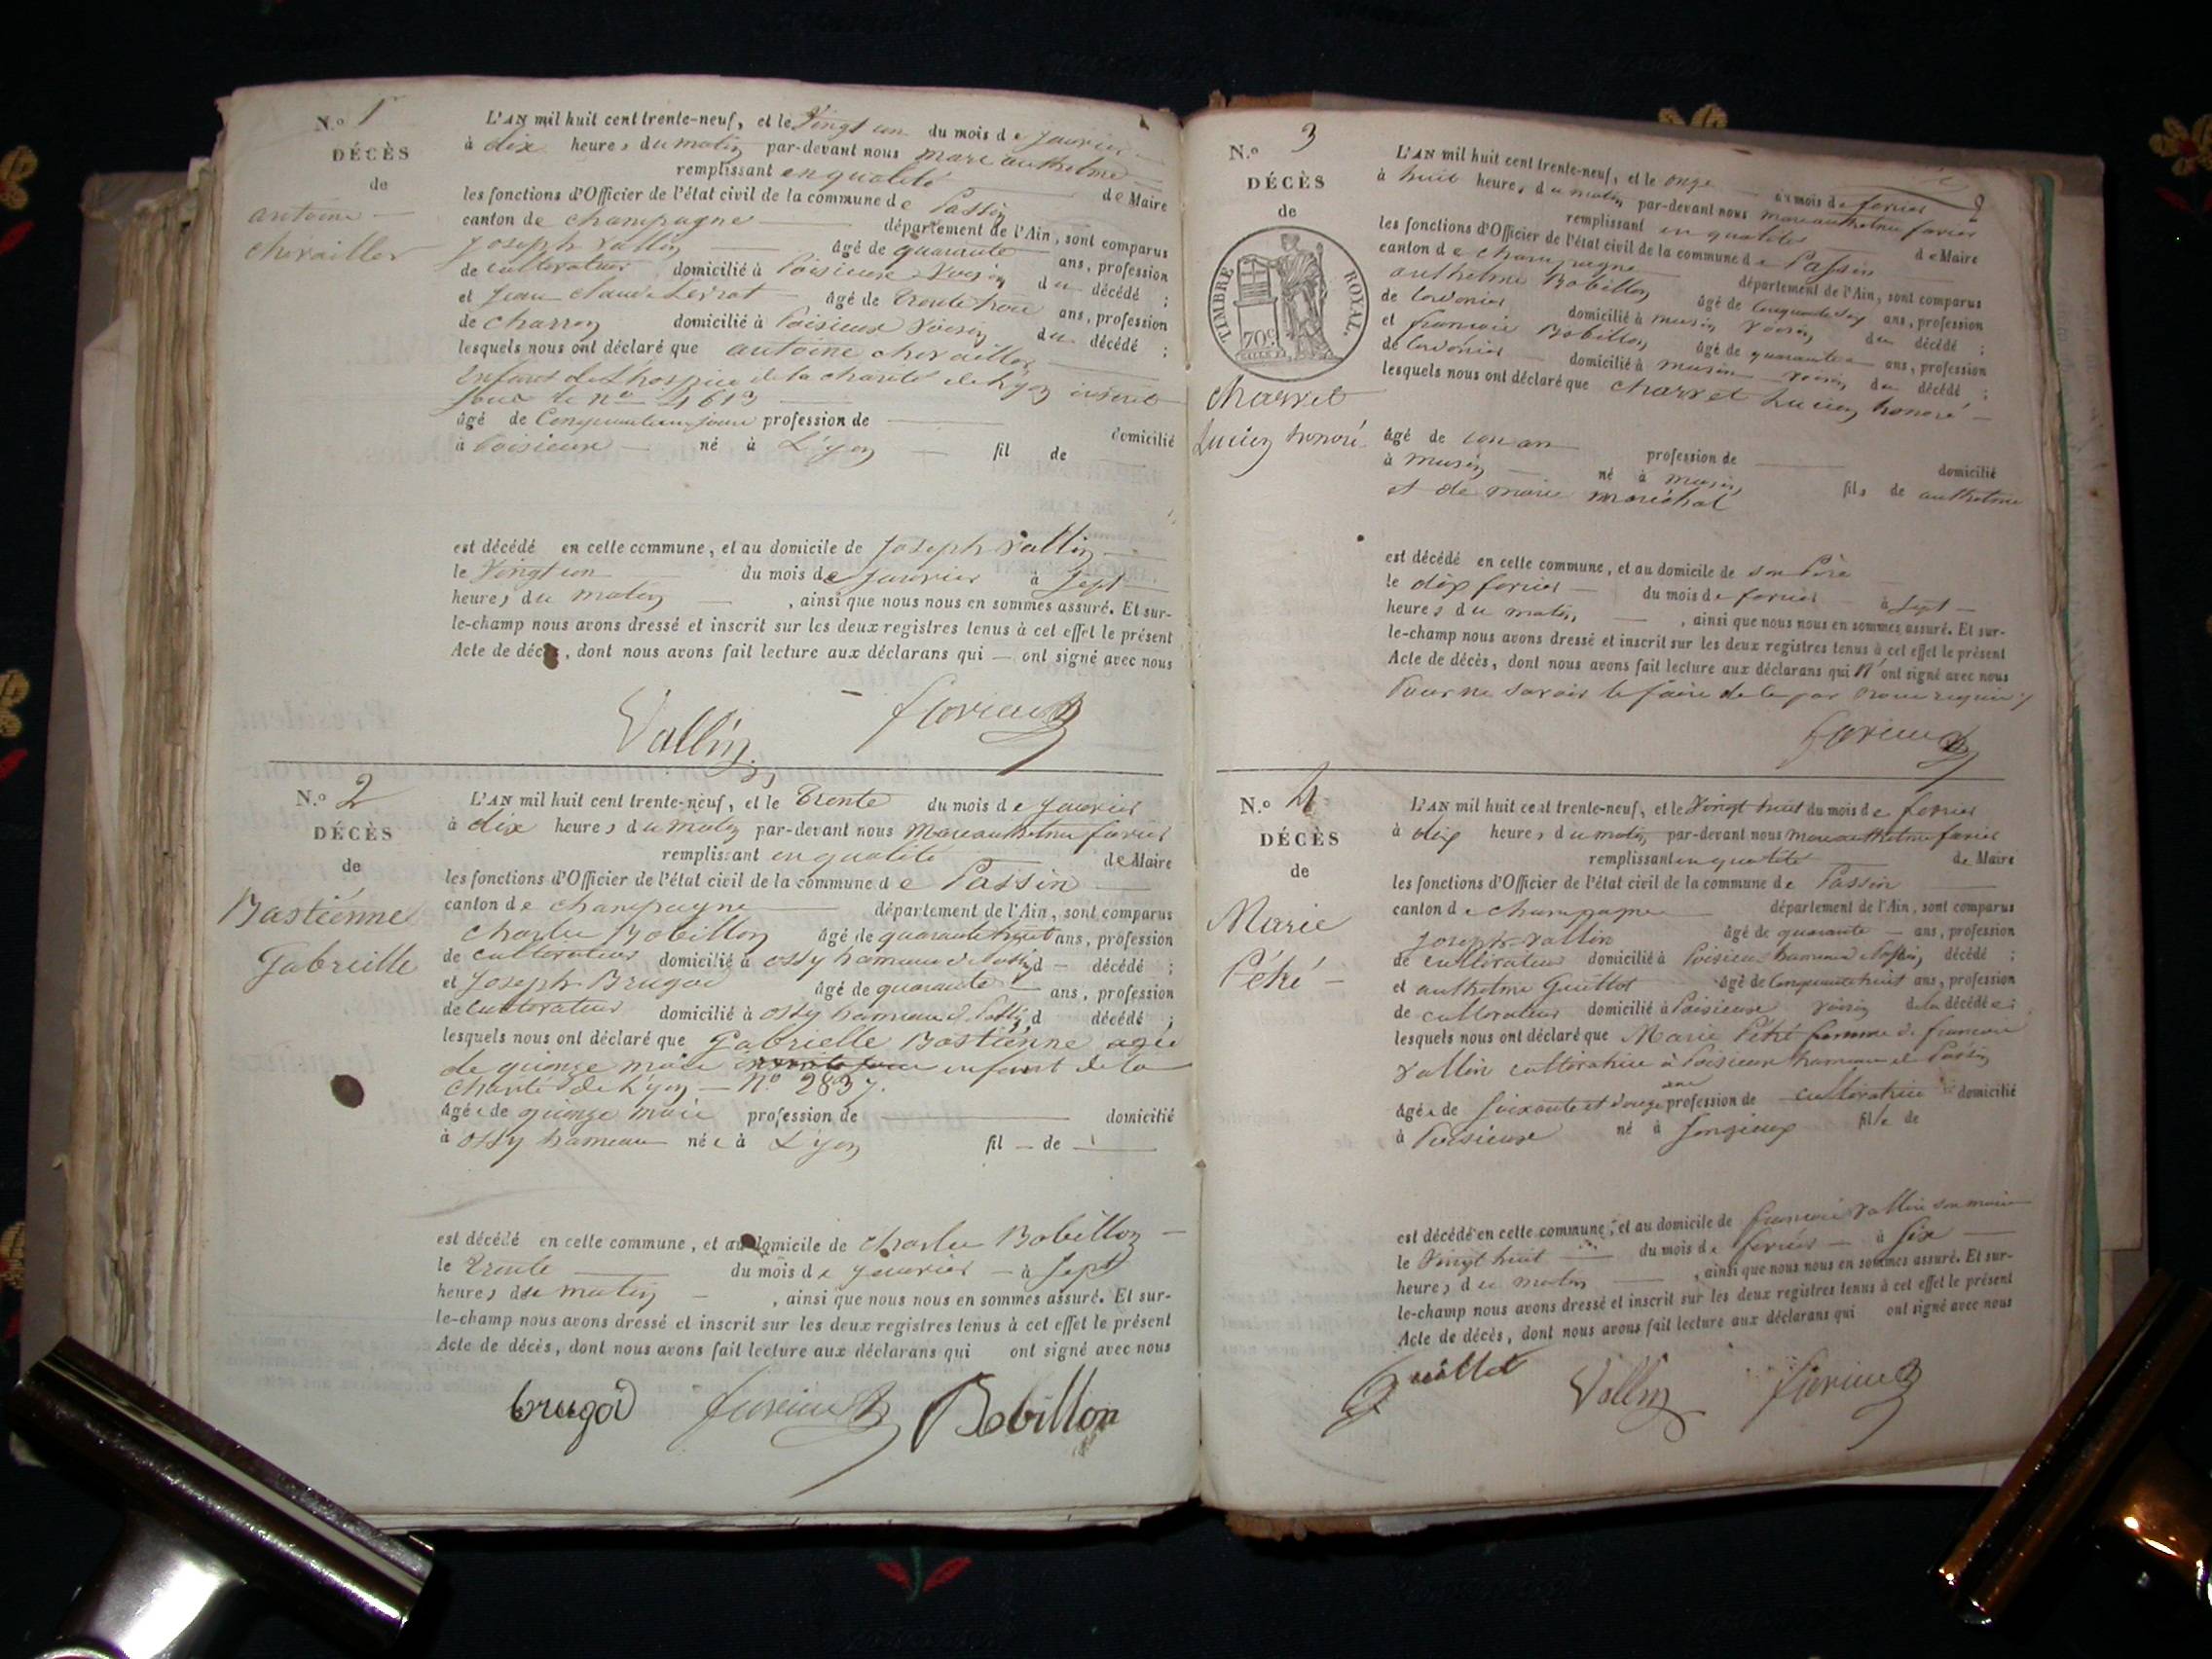 N.o 1
DÉCÈS
de
antoine
chevailler
L'AN mil huit cent trente-neuf, et le Vingt un du mois de janvier
à dix heures du matin par-devant nous marc anthelme
remplissant en qualité de Maire
les fonctions d'Officier de l'état civil de la commune de Passin
canton de champagne département de l'Ain, sont comparus
joseph Vallin âgé de quarante ans, profession
de cultivateur domicilié à Poisieux Voisin du décédé ;
et jean claude âgé de trente trois ans, profession
de charron domicilié à Poisieux Voisin du décédé ;
lesquels nous ont déclaré que antoine chevailler
enfant de L'hospice de la charité de Lyon inscrit
sous le no 4613
âgé de jours profession de domicilié
à Poisieux né à Lyon fil de
est décédé en cette commune, et au domicile de Joseph Vallin
le Vingt un du mois de janvier à Sept
heures du matin , ainsi que nous nous en sommes assuré. Et sur-
le-champ nous avons dressé et inscrit sur les deux registres tenus à cet effet le présent
Acte de décès, dont nous avons fait lecture aux déclarans qui — ont signé avec nous
Vallin favier
N.o 2
DÉCÈS
de
Bastienne
Gabrielle
L'AN mil huit cent trente-neuf, et le trente du mois de janvier
à dix heures du matin par-devant nous Marc anthelme favier
remplissant en qualité de Maire
les fonctions d'Officier de l'état civil de la commune de Passin
canton de champagne département de l'Ain, sont comparus
charles Bobillon âgé de quarante huit ans, profession
de cultivateur domicilié à ossy hameau de Passin d — décédé ;
et Joseph Brugod âgé de quarante ans, profession
de cultivateur domicilié à ossy hameau de Passin d décédé ;
lesquels nous ont déclaré que Gabrielle Bastienne agée
de quinze mois enfant de la
charité de Lyon — No 2837.
âgée de quinze mois profession de domicilié
à ossy hameau née à Lyon fil — de
est décédé en cette commune, et au domicile de charles Bobillon
le trente du mois de janvier à Sept
heures du matin , ainsi que nous nous en sommes assuré. Et sur-
le-champ nous avons dressé et inscrit sur les deux registres tenus à cet effet le présent
Acte de décès, dont nous avons fait lecture aux déclarans qui ont signé avec nous
brugod favier Bobillon
2
N.o 3
DÉCÈS
de
TIMBRE ROYAL.
70c
charvet
Lucien honoré
L'AN mil huit cent trente-neuf, et le onze du mois de fevrier
à huit heures du matin par-devant nous marc anthelme favier
remplissant en qualité de Maire
les fonctions d'Officier de l'état civil de la commune de Passin
canton de champagne département de l'Ain, sont comparus
anthelme Bobillon âgé de ans, profession
de cordonier domicilié à musin voisin du décédé ;
et francois Bobillon âgé de quarante ans, profession
de cordonier domicilié à musin voisin du décédé ;
lesquels nous ont déclaré que charvet Lucien honoré
âgé de un an profession de domicilié
à musin né à musin fils de anthelme
et de marie maréchal
est décédé en cette commune, et au domicile de son Père
le dix fevrier du mois de fevrier à Sept
heures du matin , ainsi que nous nous en sommes assuré. Et sur-
le-champ nous avons dressé et inscrit sur les deux registres tenus à cet effet le présent
Acte de décès, dont nous avons fait lecture aux déclarans qui n'ont signé avec nous
Pour ne savoir le faire de ce par nous requis
favier
N.o 4
DÉCÈS
de
Marie
Pétré
L'AN mil huit cent trente-neuf, et le Vingt huit du mois de fevrier
à dix heures du matin par-devant nous marc anthelme favier
remplissant en qualité de Maire
les fonctions d'Officier de l'état civil de la commune de Passin
canton de champagne département de l'Ain, sont comparus
joseph Vallin âgé de quarante — ans, profession
de cultivateur domicilié à Poisieux hameau de Passin, décédé ;
et anthelme Guillot âgé de cinquante huit ans, profession
de cultivateur domicilié à Poisieux voisin de la décédée ;
lesquels nous ont déclaré que Marie Pétré femme de francois
Vallin cultivatrice à Poisieux hameau de Passin
âgée de soixante et douze ans profession de cultivatrice domicilié
à Poisieux né à Songieux fille de
est décédé en cette commune, et au domicile de francois Vallin son mari
le Vingt huit du mois de fevrier à Six
heures du matin , ainsi que nous nous en sommes assuré. Et sur-
le-champ nous avons dressé et inscrit sur les deux registres tenus à cet effet le présent
Acte de décès, dont nous avons fait lecture aux déclarans qui ont signé avec nous
Guillot Vallin favier